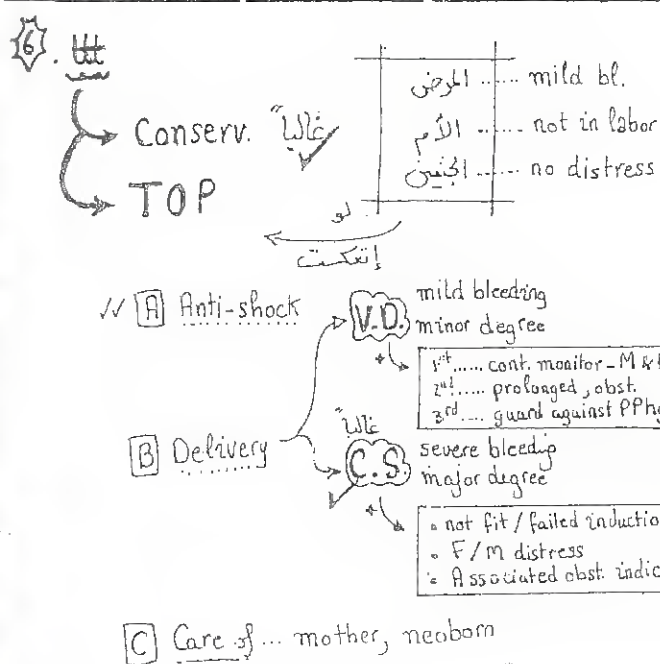 6. ttt
Conserv. غالباً
TOP
المرض ...... mild bl.
الأم ...... not in labor
الجنين ...... no distress
لو
إتعكست
A Anti-shock
V.D. mild bleeding
minor degree
1st ...... cont. monitor - M &
2nd ..... prolonged, obst.
3rd .... guard against PPhg
B Delivery
غالباً
C.S. severe bleedig
major degree
• not fit / failed inductio
• F/M distress
• Associated obst. indic
C Care of ... mother, neoborn